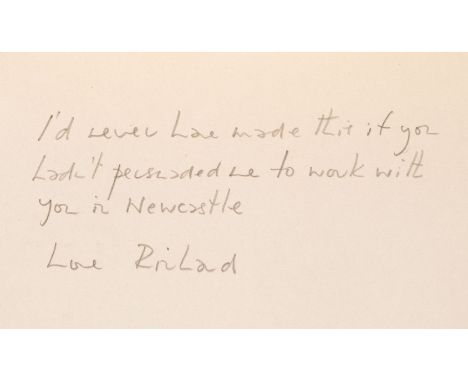 I'd never have made this if you
hadn't persuaded me to work with
you in Newcastle
Love Richard